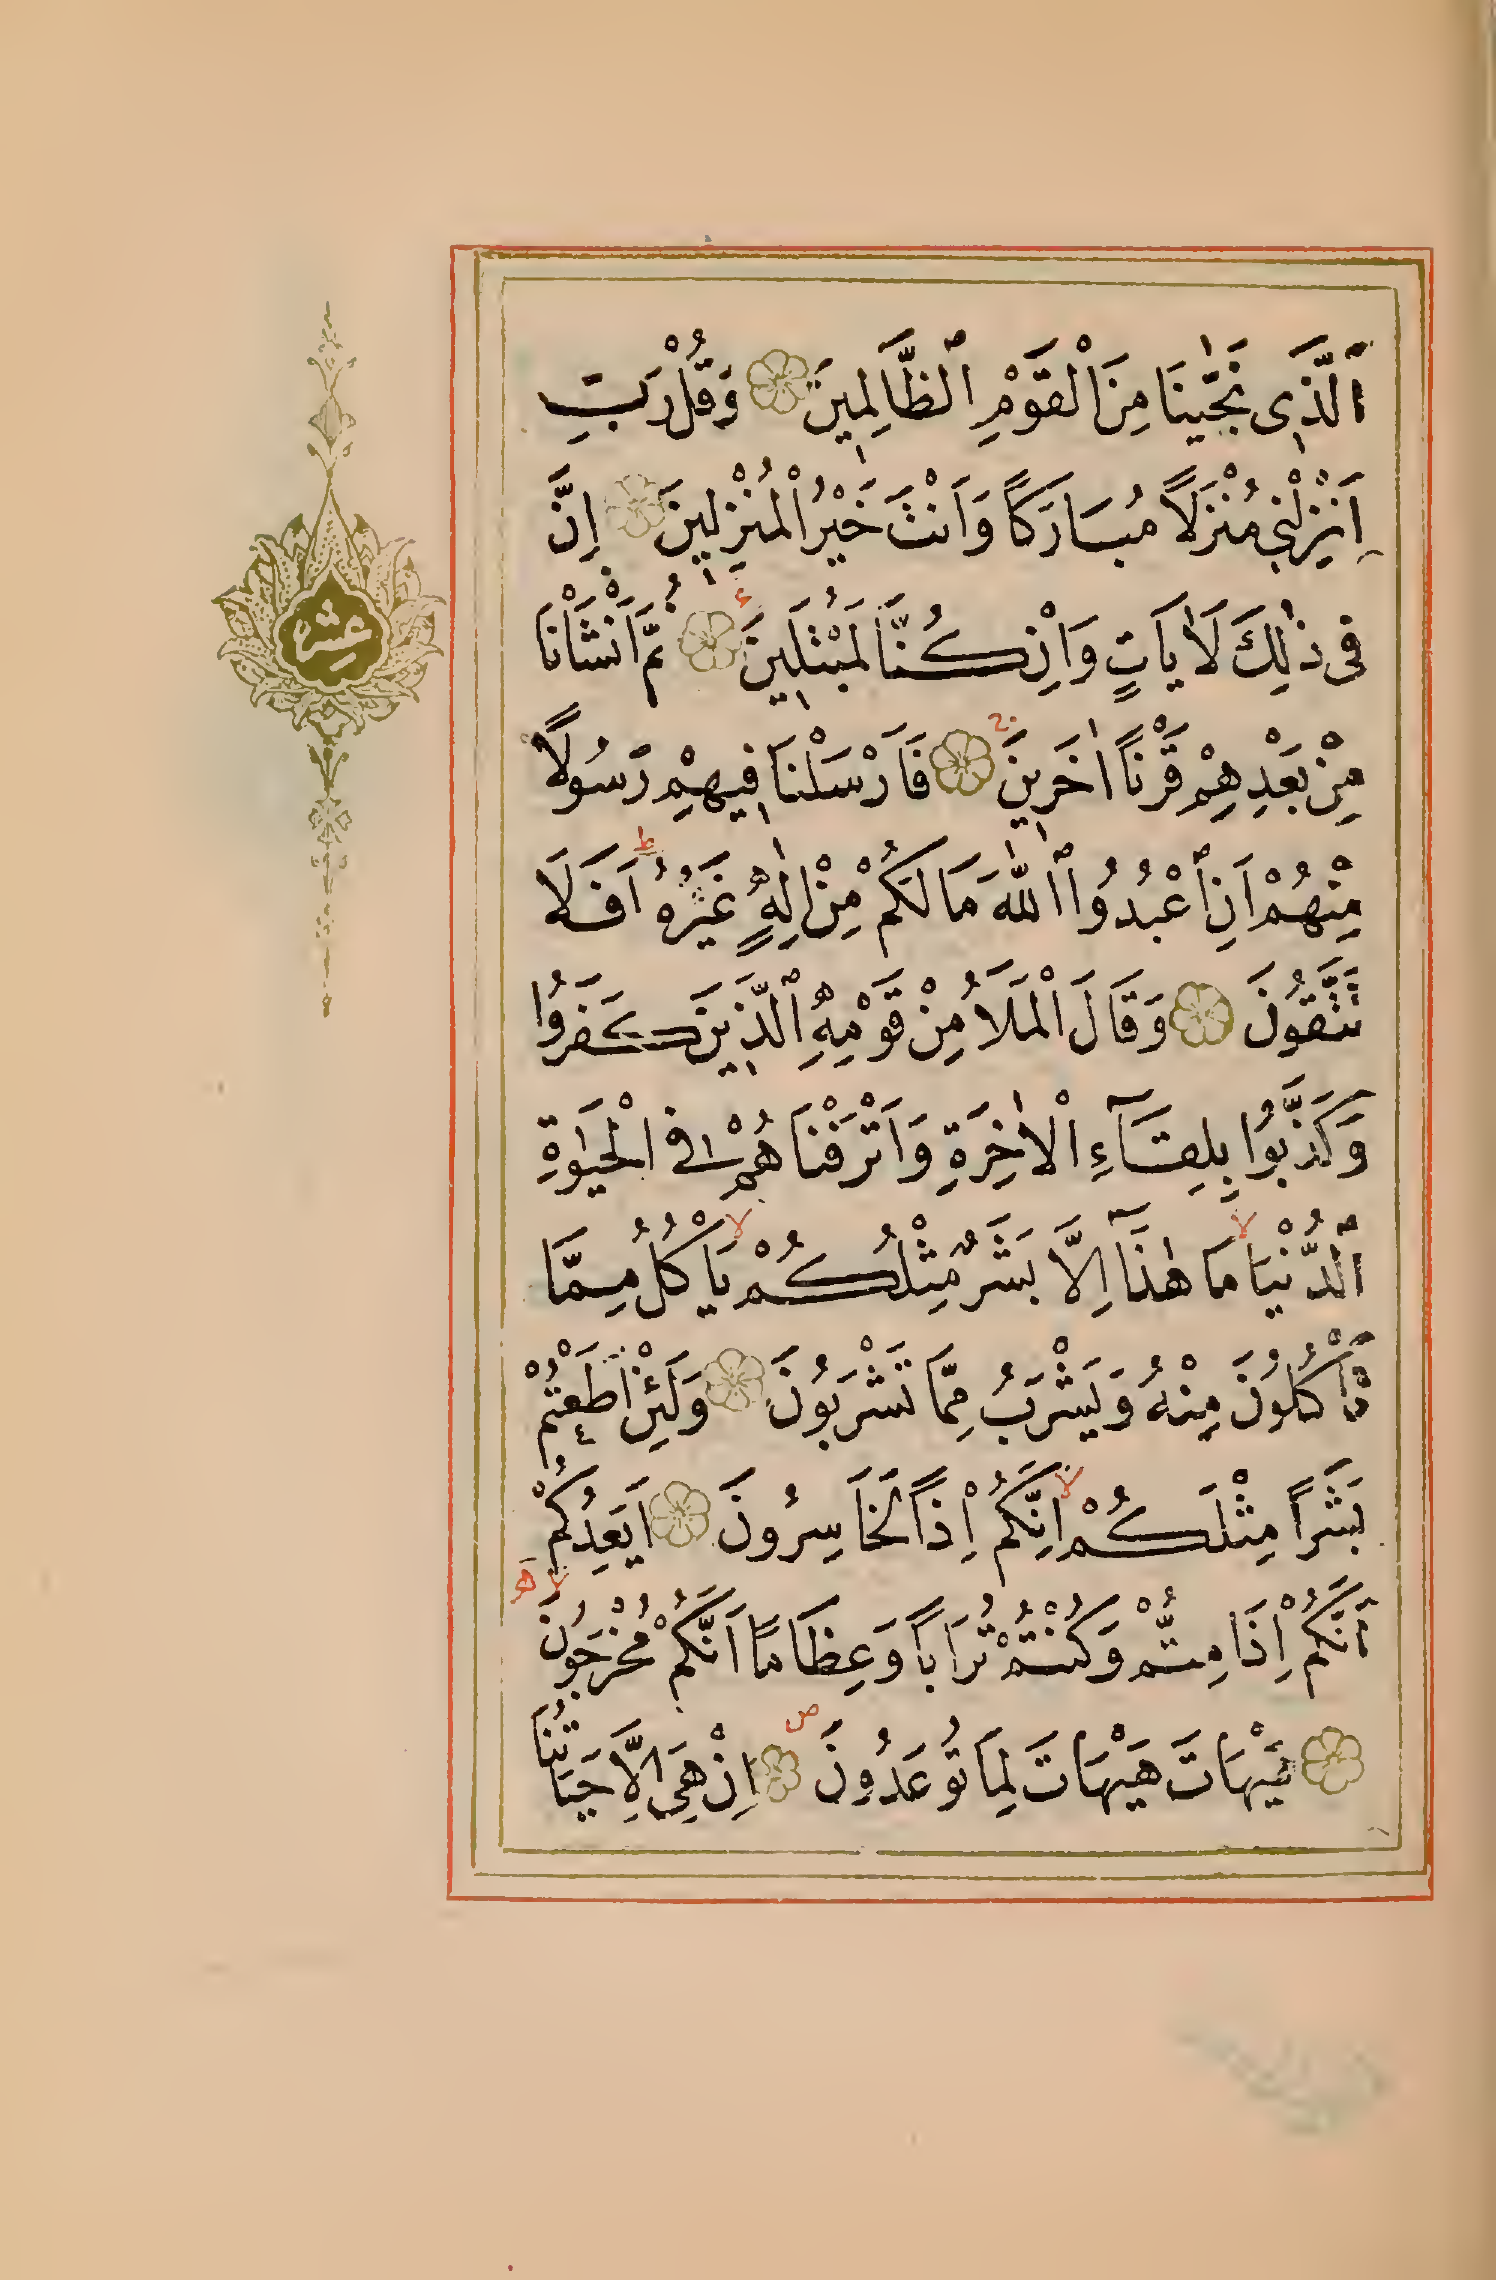 ٱلَّذِى نَجّٰينَا مِنَ الْقَوْمِ ٱلظَّالِمِينَ وَقُلْ رَبِّ
اَنْزِلْنِى مُنْزَلًا مُبَارَكًا وَاَنْتَ خَيْرُ الْمُنْزِلِينَ اِنَّ
فِى ذٰلِكَ لَاٰيَاتٍ وَاِنْ كُنَّا لَمُبْتَلِينَ ثُمَّ اَنْشَأْنَا
مِنْ بَعْدِهِمْ قَرْنًا اٰخَرِينَ فَاَرْسَلْنَا فِيهِمْ رَسُولًا
مِنْهُمْ اَنِ ٱعْبُدُوا ٱللّٰهَ مَا لَكُمْ مِنْ اِلٰهٍ غَيْرُهُ اَفَلَا
تَتَّقُونَ وَقَالَ الْمَلَأُ مِنْ قَوْمِهِ ٱلَّذِينَ كَفَرُوا
وَكَذَّبُوا بِلِقَآءِ الْاٰخِرَةِ وَاَتْرَفْنَاهُمْ فِى الْحَيٰوةِ
ٱلدُّنْيَا مَا هٰذَآ اِلَّا بَشَرٌ مِثْلُكُمْ يَأْكُلُ مِمَّا
تَأْكُلُونَ مِنْهُ وَيَشْرَبُ مِمَّا تَشْرَبُونَ وَلَئِنْ اَطَعْتُمْ
بَشَرًا مِثْلَكُمْ اِنَّكُمْ اِذًا لَخَاسِرُونَ اَيَعِدُكُمْ
اَنَّكُمْ اِذَا مِتُّمْ وَكُنْتُمْ تُرَابًا وَعِظَامًا اَنَّكُمْ مُخْرَجُونَ
هَيْهَاتَ هَيْهَاتَ لِمَا تُوعَدُونَ اِنْ هِىَ اِلَّا حَيَاتُنَا
عشر